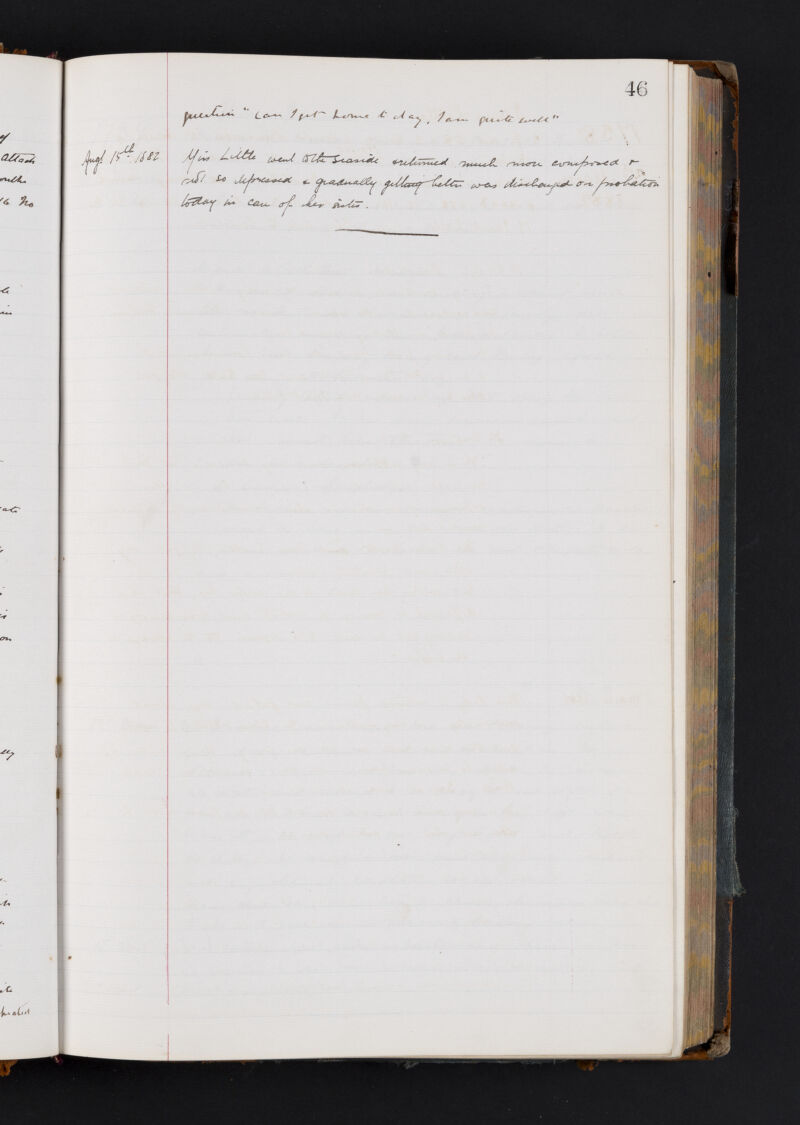 46
question "Can I get home to day, I am quite well"
Augt 15th 1882 Miss Little went to the seaside & returned much more composed &
not so depressed & gradually getting better was discharged on probation
today in care of her sister.
of
attack
months
No
ally